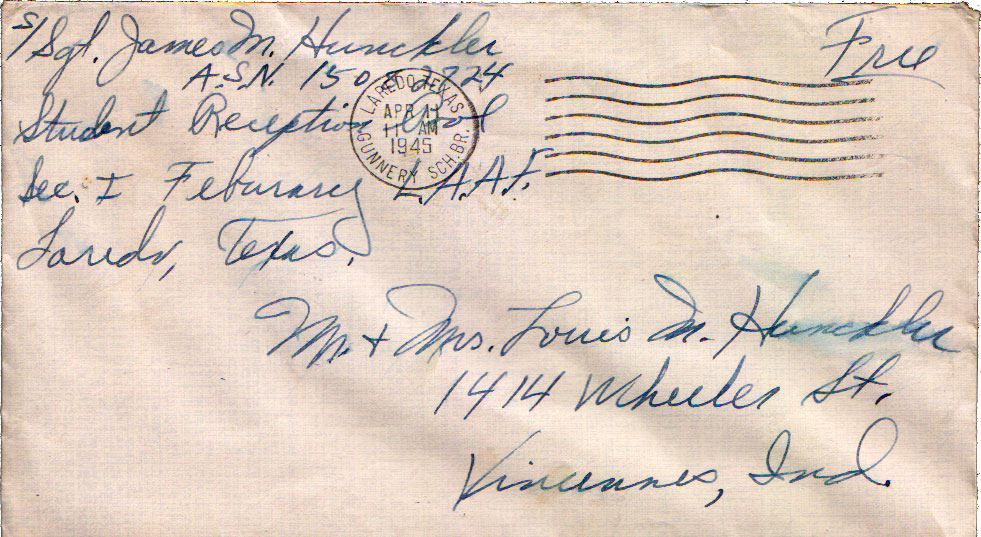 S/Sgt. James M. Hunckler
A.S.N. 150
Student Reception Pool
Sec. I Feburary L.A.A.F.
Laredo, Texas.
Free
LAREDO, TEXAS
APR 11
11 AM
1945
GUNNERY SCH. BR.
Mr. + Mrs. Louis M. Hunckler
1414 Wheeler St.
Vincennes, Ind.